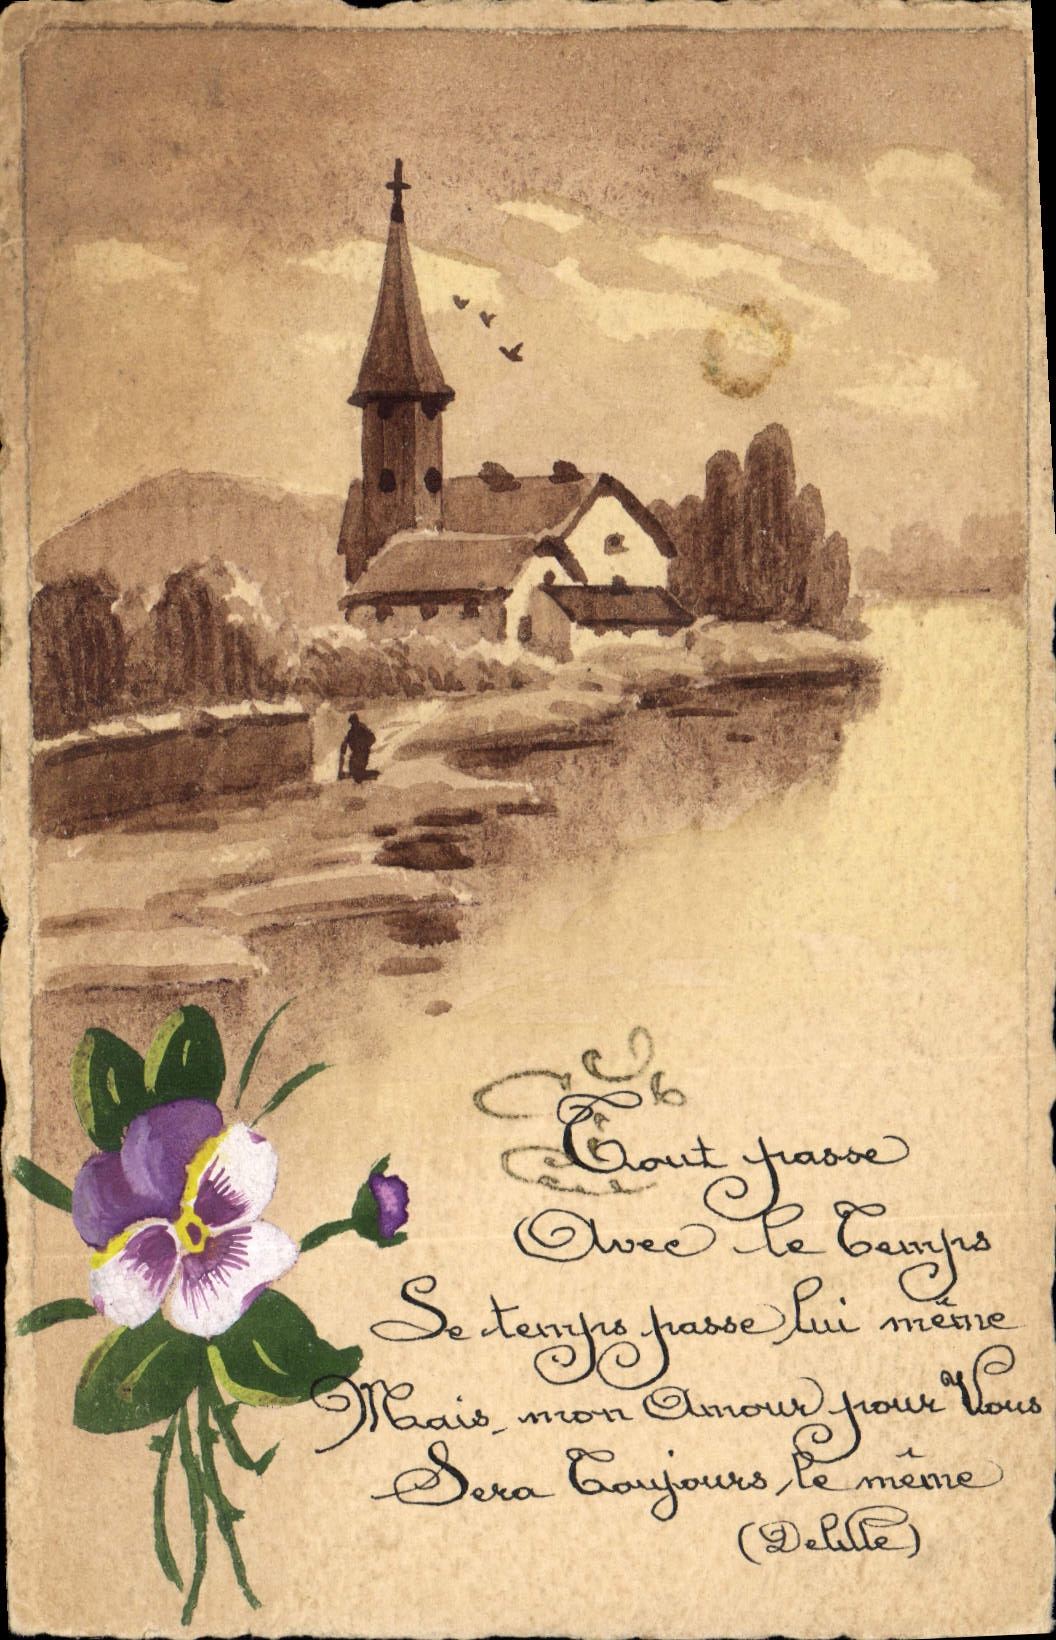 Tout passe
Avec le Temps
Le temps passe lui même
Mais mon Amour pour Vous
Sera Toujours le même
(Delille)